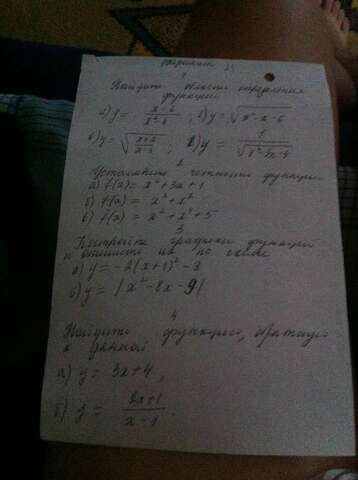 Вариант
1
Найдите область определения
функции
а) y = , б) y = √x²-x-6
в) y = √(x+2)/(x-3), г) y = 1/√
2
Установите четность функции
а) f(x) = x²+3x+1
б) f(x) =
в) f(x) = +5
3
Постройте графики функций
и опишите их по схеме
а) y = -2(x+1)²-3
б) y = |x²-8x-9|
4
Найдите функцию, обратную
к данной
а) y = 3x+4,
б) y = (2x+1)/(x-1).